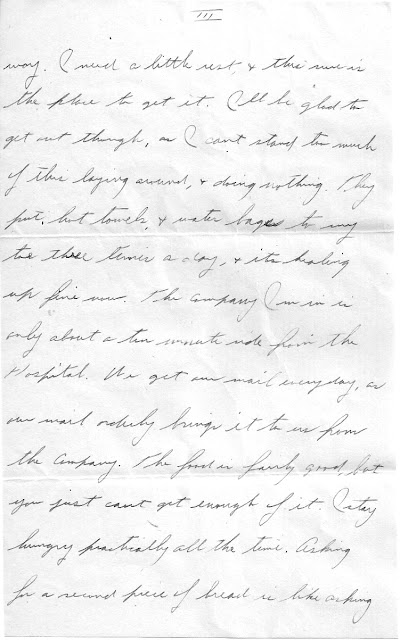 III
way. I need a little rest, & this sure is
the place to get it. I'll be glad to
get out though, as I can't stand too much
of this laying around, & doing nothing. They
put, hot towels, & water bages to my
toe three times a day, & its healing
up fine now. The company I'm in is
only about a ten minute ride from the
Hospital. We get our mail everyday, as
our mail orderly brings it to us from
the Company. The food is fairly good, but
you just can't get enough of it. I stay
hungry practically all the time. Asking
for a second piece of bread is like asking